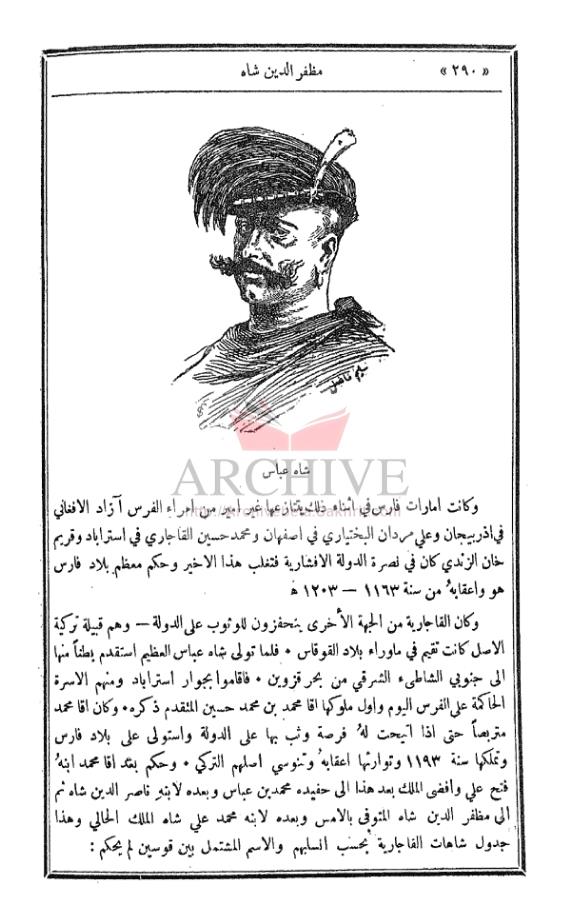 « ٢٩٠ »
مظفر الدين شاه
سليم فاضل
شاه عباس
ARCHIVE
وكانت امارات فارس في اثناء ذلك يتنازعها غير امير من امراء الفرس آزاد الافغاني
في اذربيجان وعلي مردان البختياري في اصفهان ومحمد حسين القاجاري في استراباد وقريم
خان الزندي كان في نصرة الدولة الافشارية فتغلب هذا الاخير وحكم معظم بلاد فارس
هو واعقابهُ من سنة ١١٦٣ — ١٢٠٣ ﻫ
وكان القاجارية من الجهة الأخرى يتحفزون للوثوب على الدولة — وهم قبيلة تركية
الاصل كانت تقيم في ماوراء بلاد القوقاس ٠ فلما تولى شاه عباس العظيم استقدم بطناً منها
الى جنوبي الشاطىء الشرقي من بحر قزوين ٠ فاقاموا بجوار استراباد ومنهم الاسرة
الحاكمة على الفرس اليوم واول ملوكها اقا محمد بن محمد حسين المتقدم ذكره ٠ وكان اقا محمد
متربصاً حتى اذا اتيحت لهُ فرصة وثب بها على الدولة واستولى على بلاد فارس
وتملكها سنة ١١٩٣ وتوارثها اعقابهُ وتنوسي اصلهم التركي ٠ وحكم بعد اقا محمد ابنهُ
فتح علي وافضى الملك بعد هذا الى حفيده محمد بن عباس وبعده لابنهِ ناصر الدين شاه ثم
الى مظفر الدين شاه المتوفى بالامس وبعده لابنه محمد علي شاه الملك الحالي وهذا
جدول شاهات القاجارية بحسب انسابهم والاسم المشتمل بين قوسين لم يحكم :